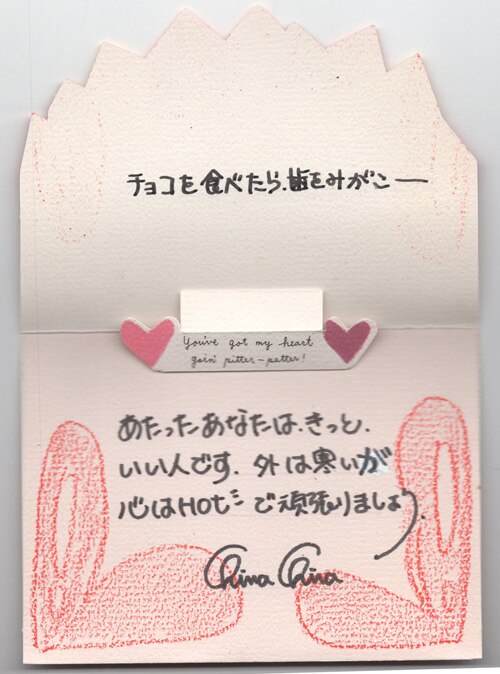 チョコを食べたら、歯をみがこー
You've got my heart
goin' pitter-patter!
あたったあなたは、きっと、
いい人です。外は寒いが
心はHOtﾋﾞで頑張りましょう。
China China